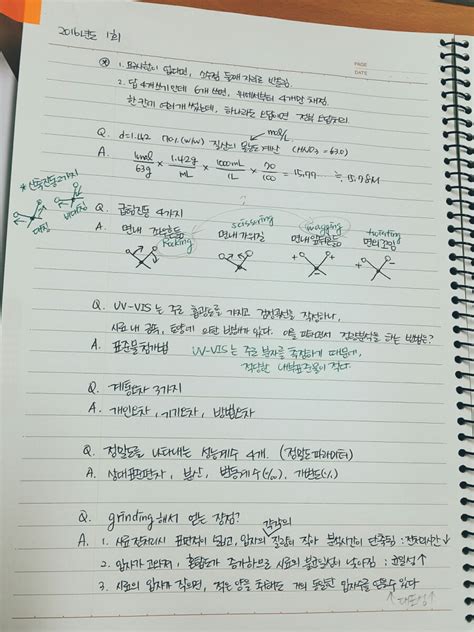 2016년도 1회
PAGE
DATE
1. 요구사항이 없다면, 소수점 둘째 자리로 반올림
2. 답 4개 쓰기인데 6개 쓰면, 위에서부터 4개만 채점.
한 칸에 여러개 썼는데, 하나라도 오답이면 전체 오답처리
Q. d=1.42 70% (w/w) 질산의 몰농도 계산 (HNO3=63.0)
mol/L
A. 1mol/63g × 1.42g/mL × 1000mL/1L × 70/100 = 15.77 ≒ 15.78M
* 신축진동 2가지
대칭
비대칭
Q. 굽힘진동 4가지
scissoring
wagging
twisting
A. 면내 좌우흔듦 면내 가위질 면외 앞뒤흔듦 면외꼬임
Rocking
Q. UV-VIS 는 주로 흡광도를 가지고 검정곡선을 작성하나,
시료 내 공존 물질에 의한 방해가 있다. 이를 피하면서 정량분석을 하는 방법은?
A. 표준물첨가법 UV-VIS는 주로 분자를 측정하기 때문에,
적당한 내부표준물이 적다.
Q. 계통오차 3가지
A. 개인오차, 기기오차, 방법오차
Q. 정밀도를 나타내는 성능계수 4개. (정밀도 파라미터)
A. 상대표준편차, 분산, 변동계수(%), 가변도(%)
Q. grinding 해서 얻는 장점?
각각의
A. 1. 시료 전처리시 표면적이 넓고, 입자의 질량이 작아 분석시간이 단축됨 : 전처리시간↓
2. 입자가 고와져, 혼합도가 증가하므로 시료의 불균일성이 낮아짐 : 균일성↑
3. 시료의 입자가 작으면, 적은 양을 취해도 거의 동일한 입자수를 얻을수 있다
↑대표성↑